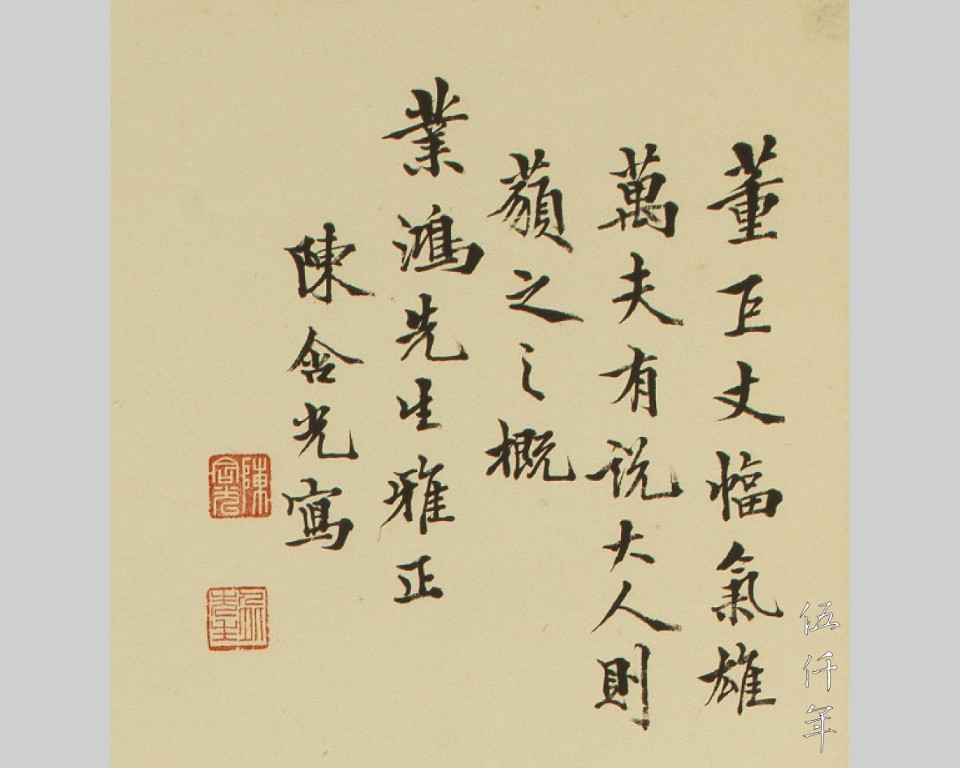 董巨丈幅氣雄
萬夫有说大人則
藐之之概
業鴻先生雅正
陳含光寫
陳含光
伍仟年